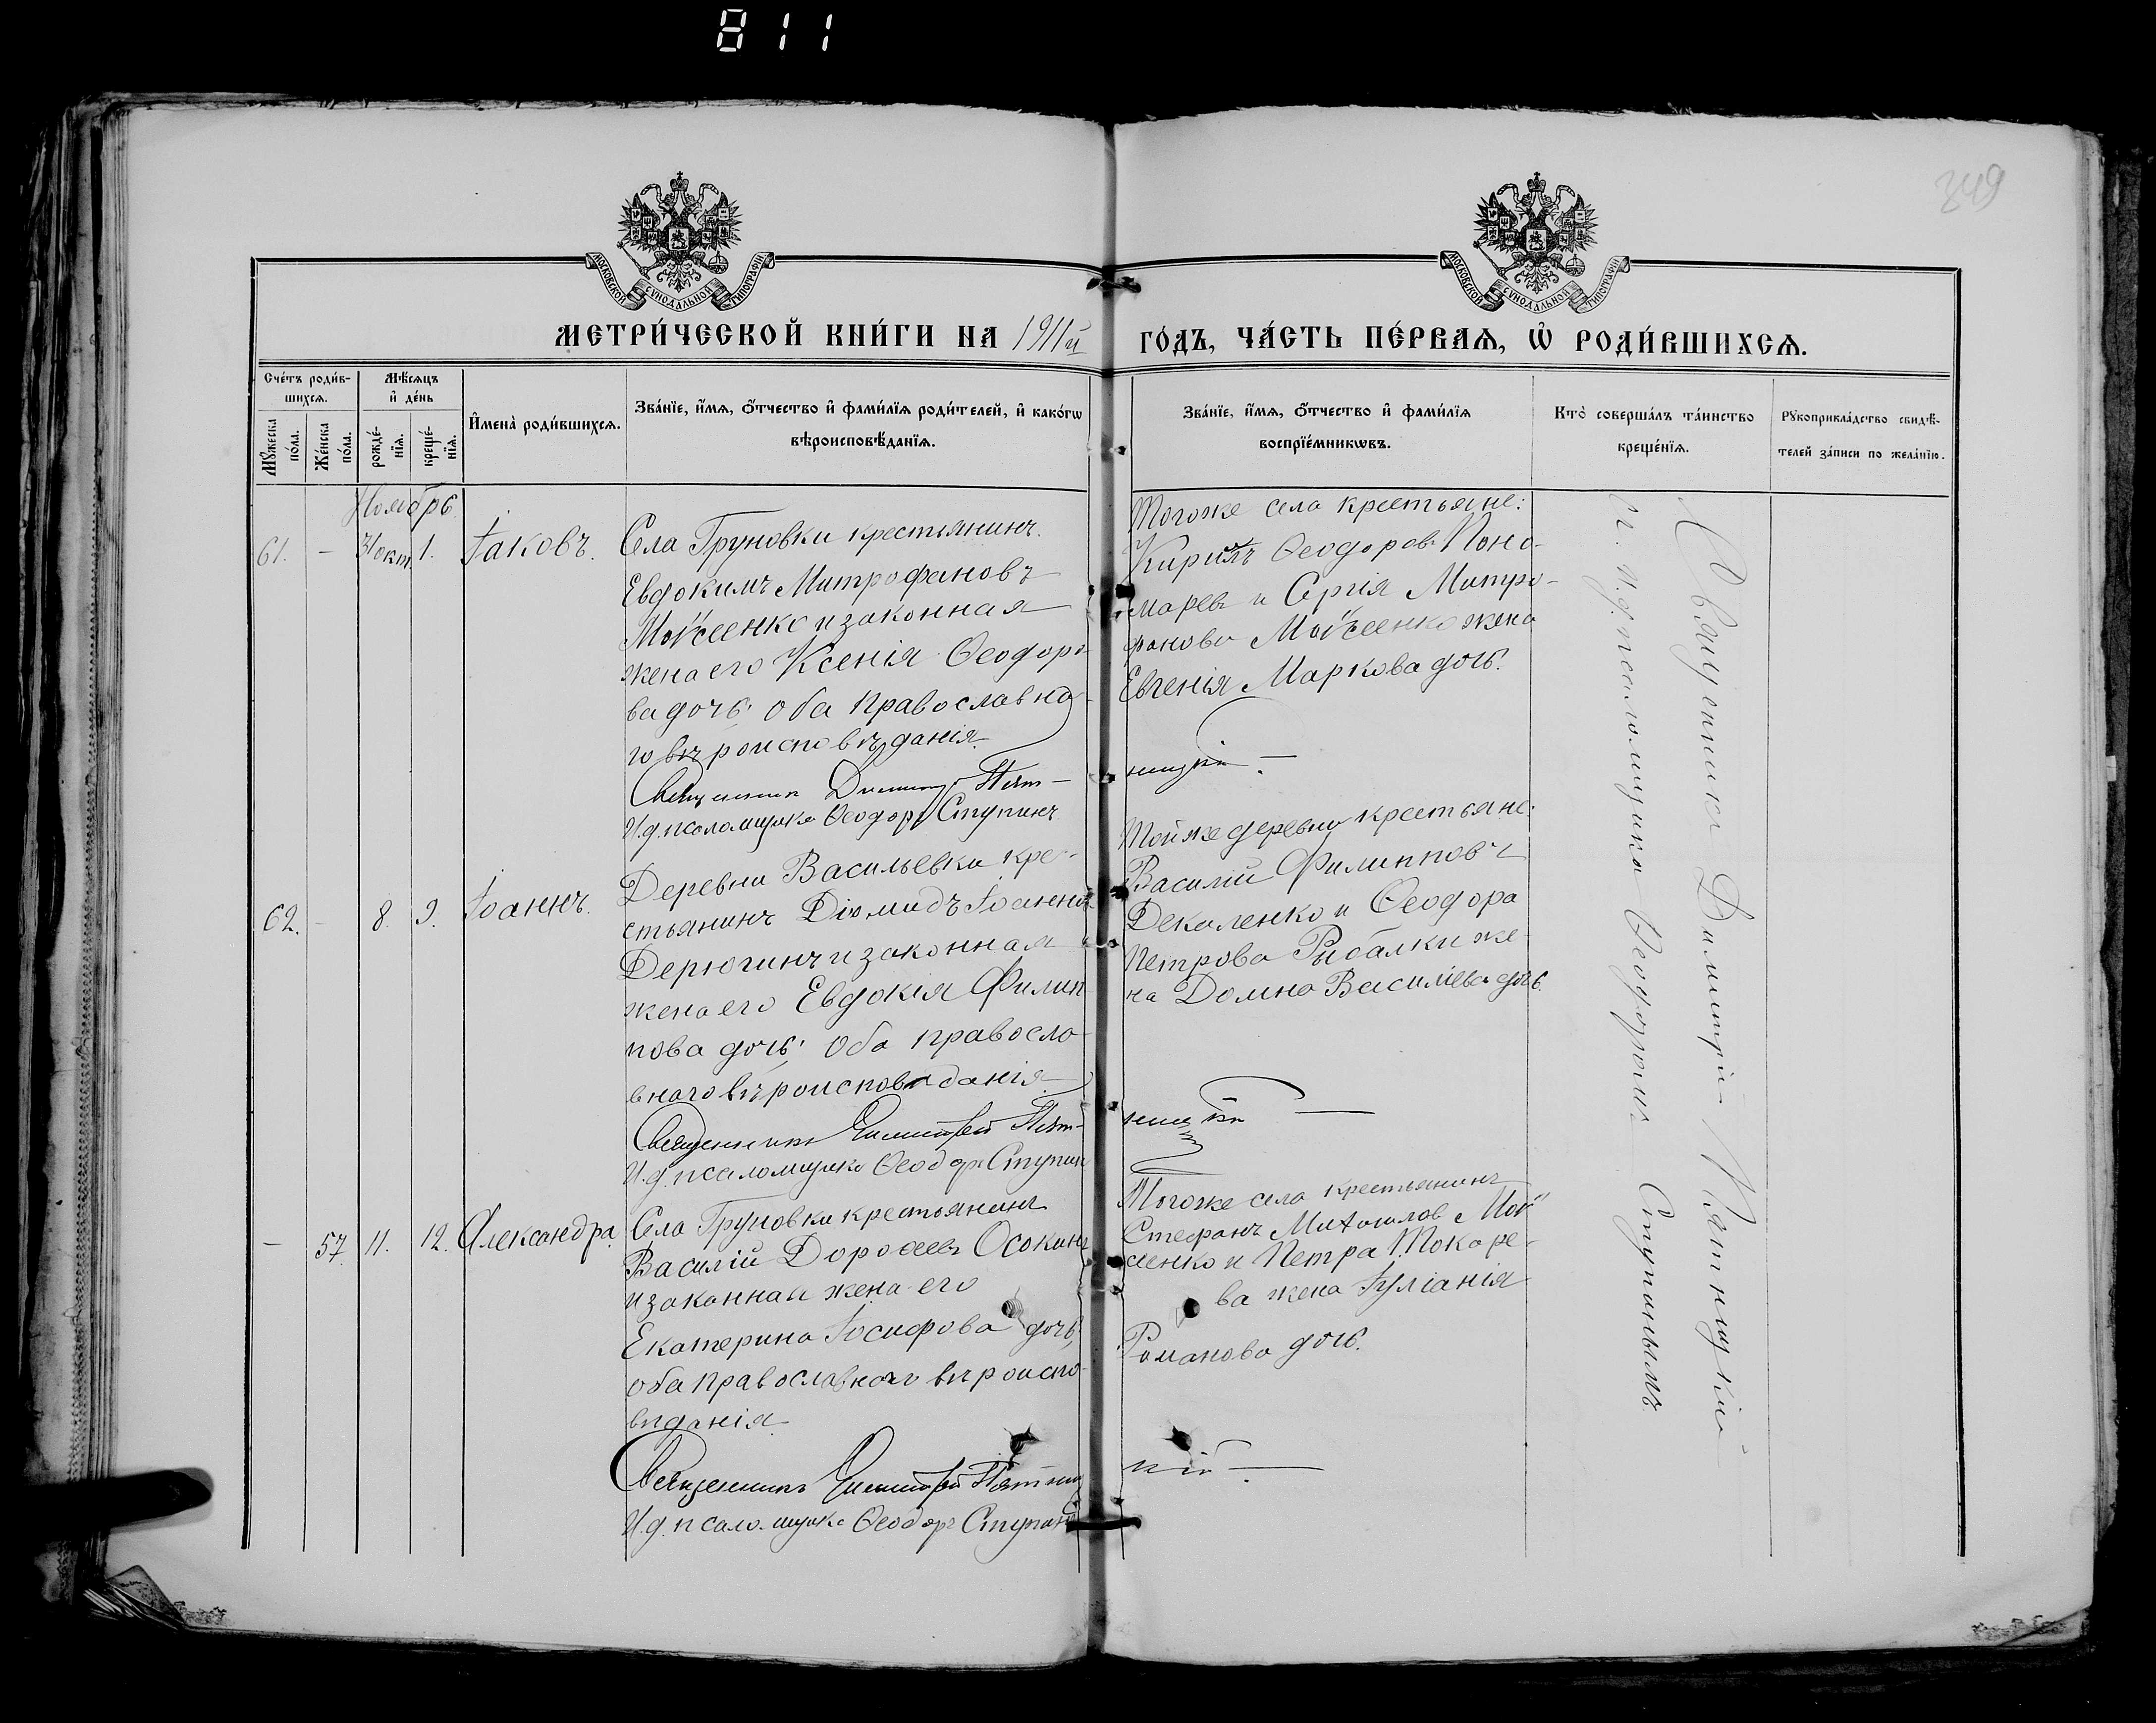 811
349
МОСКОВСКОЙ СУНОДАЛЬНОЙ ТИПОГРАФИИ
МОСКОВСКОЙ СУНОДАЛЬНОЙ ТИПОГРАФИИ
МЕТРИ́ЧЕСКОЙ КНИ́ГИ НА 1911й ГО́ДЪ, ЧА́СТЬ ПЕ́РВАѦ, Ѡ҆ РОДИ́ВШИХСѦ.
Сче́тъ роди́в-
шихсѧ.
Мꙋ́жеска по́ла.
Же́нска по́ла.
Мѣ́сѧцъ
и҆ де́нь
рожде́-
нїѧ.
креще́-
нїѧ.
И҆мена̀ роди́вшихсѧ.
Зва́нїе, и҆́мѧ, ѻ҆́тчество и҆ фами́лїѧ роди́телей, и҆ како́гѡ
вѣроисповѣ́данїѧ.
Зва́нїе, и҆́мѧ, ѻ҆́тчество и҆ фами́лїѧ
воспрїе́мникѡвъ.
Кто̀ соверша́лъ та́инство
креще́нїѧ.
Рꙋкоприкла́дство свидѣ́-
телей за́писи по жела́нїю.
Ноябрь
61. – 31 окт. 1. Іаковъ.
Села Груновки крестьянинъ
Евдокимъ Митрофановъ
Мойсеенко и законная
жена его Ксенія Ѳеодоро
ва дочь; оба православна
го вѣроисповѣданія.
Священникъ Димитрій Пят-
ницкій.
И.д. псаломщика Ѳеодоръ Ступинъ
Тогоже села крестьяне:
Кирилъ Ѳеодоровъ Поно-
маревъ и Сергія Митро-
фанова Мойсеенко жена
Евгенія Маркова дочь.
62. – 8. 9. Іоаннъ.
Деревни Васильевки кре-
стьянинъ Діомидъ Іоанно
Дерюгинъ и законная
жена его Евдокія Филип
пова дочь; оба правосла
внаго вѣроисповѣданія.
Священникъ Димитрій Пят-
ницкій
И.д. псаломщика Ѳеодоръ Ступин
Тойже деревни крестьяне:
Василій Филипповъ
Декаленко и Ѳеодора
Петрова Рыбалки же-
на Домна Васильева дочь.
– 57. 11. 12. Александра.
Села Груновки крестьянинъ
Василій Дороѳеевъ Осокинъ
и законная жена его
Екатерина Іосифова дочь;
оба православнаго вѣроиспо-
вѣданія.
Священникъ Димитрій Пятниц
кій
И.д. псаломщика Ѳеодоръ Ступинъ
Тогоже села крестьянинъ
Стефанъ Михаиловъ Мой
сеенко и Петра Токаре-
ва жена Іуліанія
Романова дочь.
Священникъ Димитрій Пятницкій
съ и.д. псаломщика Ѳеодоромъ Ступинымъ.